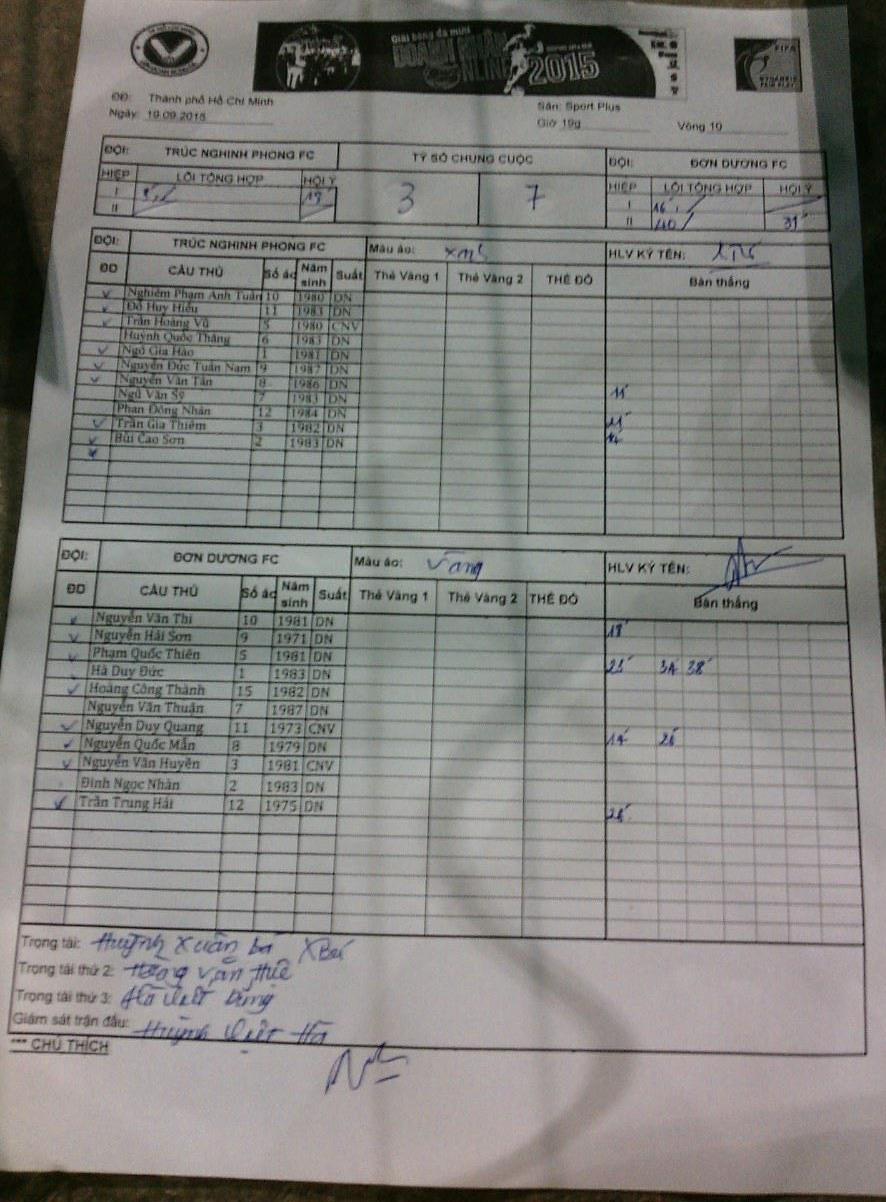 Giải bóng đá mini
DOANH NHÂN
ONLINE 2015
FIFA
ĐĐ: Thành phố Hồ Chí Minh
Sân: Sport Plus
Ngày: 19.09.2015
Giờ 19g
Vòng 10
ĐỘI: TRÚC NGHINH PHONG FC TỶ SỐ CHUNG CUỘC ĐỘI: ĐƠN DƯƠNG FC
HIỆP LỖI TỔNG HỢP HỘI Ý 3 7 HIỆP LỖI TỔNG HỢP HỘI Ý
I I 16'
II II 40' 31'
ĐỘI: TRÚC NGHINH PHONG FC Màu áo: HLV KÝ TÊN:
ĐD CẦU THỦ Số áo Năm sinh Suất Thẻ Vàng 1 Thẻ Vàng 2 THẺ ĐỎ Bàn thắng
Nghiêm Phạm Anh Tuấn 10 1980 DN
Đỗ Huy Hiếu 11 1983 DN
Trần Hoàng Vũ 5 1980 CNV
Huỳnh Quốc Thắng 6 1983 DN
Ngô Gia Hào 1 1981 DN
Nguyễn Đức Tuấn Nam 9 1987 DN
Nguyễn Văn Tấn 8 1986 DN
Ngũ Văn Sỹ 7 1983 DN 11'
Phan Đông Nhân 12 1984 DN
Trần Gia Thiêm 3 1982 DN
Bùi Cao Sơn 2 1983 DN
ĐỘI: ĐƠN DƯƠNG FC Màu áo: Vàng HLV KÝ TÊN:
ĐD CẦU THỦ Số áo Năm sinh Suất Thẻ Vàng 1 Thẻ Vàng 2 THẺ ĐỎ Bàn thắng
Nguyễn Văn Thi 10 1981 DN
Nguyễn Hải Sơn 9 1971 DN
Phạm Quốc Thiên 5 1981 DN
Hà Duy Đức 1 1983 DN
Hoàng Công Thành 15 1982 DN
Nguyễn Văn Thuận 7 1987 DN
Nguyễn Duy Quang 11 1973 CNV
Nguyễn Quốc Mẫn 8 1979 DN
Nguyễn Văn Huyền 3 1981 CNV
Đinh Ngọc Nhân 2 1983 DN
Trần Trung Hải 12 1975 DN
Trọng tài: Huỳnh Xuân Bá
Trọng tài thứ 2: Văn Huệ
Trọng tài thứ 3: Hà Việt Dũng
Giám sát trận đấu: Huỳnh Việt Hà
*** CHÚ THÍCH